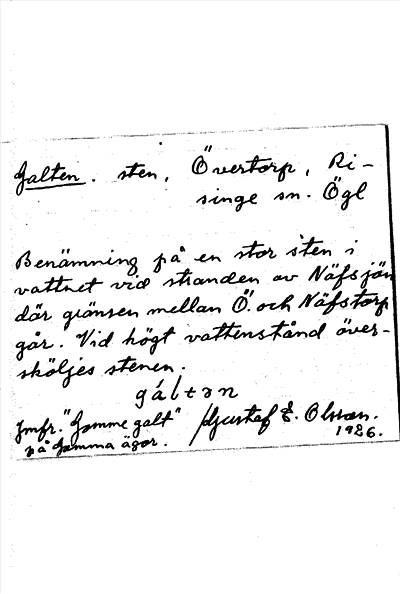 Galten. sten, Övertorp, Ri-
singe sn. Ögl
Benämning på en stor sten i
vattnet vid stranden av Näfsjön
där gränsen mellan Ö. och Näfstorp
går. Vid högt vattenstånd över-
sköljes stenen.
gáltən
Jmfr. "Gamme galt" Gustaf E. Olsson.
på samma ägor. 1926.